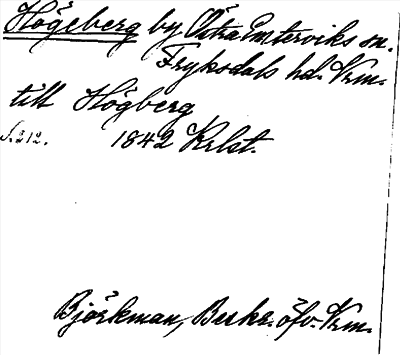 Högeberg by Östra Emterviks sn.
Fryksdals hd. Vrm.
till Högberg
S. 212. 1842 Krlst.
Björkman, Beskr. öfv. Vrm.